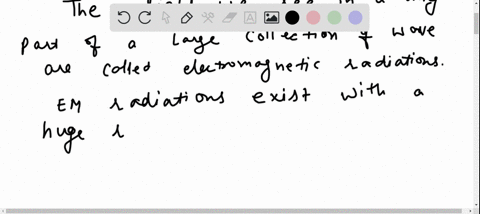 The
part of a large collection of wave
are called electromagnetic radiations.
EM radiations exist with a
huge r